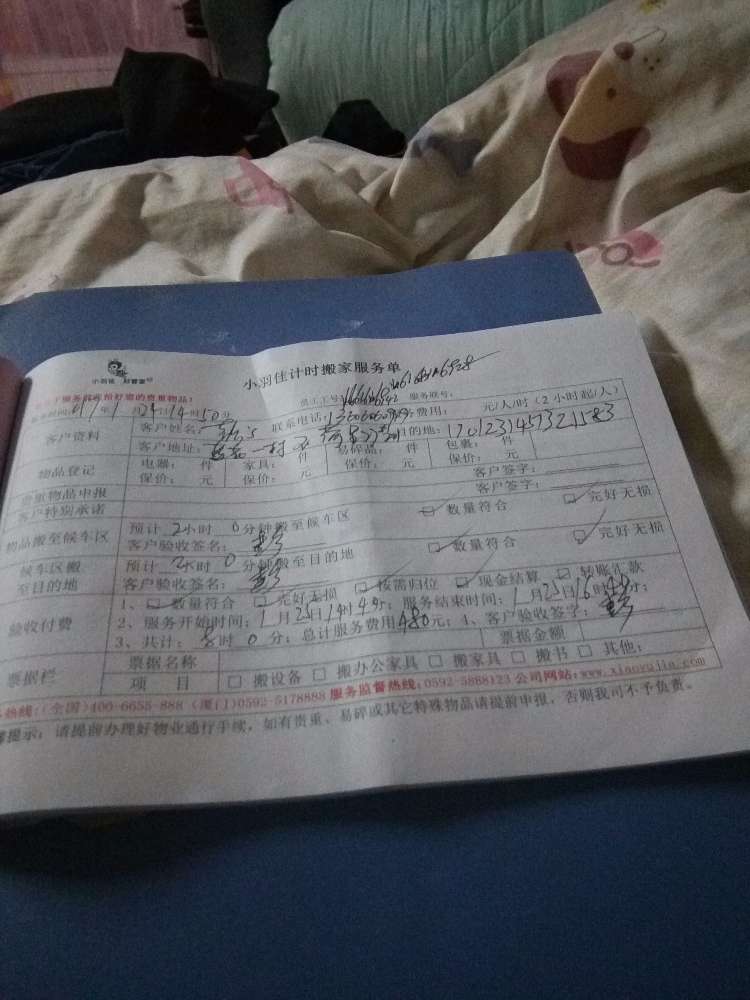 小羽佳 好管家
小羽佳计时搬家服务单
服务前收拾好您的贵重物品!
员工工号: 服务账号:
1月 14时50分
客户资料 客户姓名: 联系电话: 费用: 元/人/时(2小时起/人)
客户地址: 一村 目的地: 1701231457321583
物品登记 电器: 件 家具: 件 易碎品: 件 包裹: 件
保价: 元 保价: 元 保价: 元 保价:
贵重物品申报 客户签字:
客户特别承诺 客户签字:
物品搬至候车区 预计2小时0分钟搬至候车区 数量符合 完好无损
客户验收签名:
候车区搬至目的地 预计2小时0分钟搬至目的地 数量符合 完好无损
客户验收签名:
验收付费 1、数量符合 完好无损 按需归位 现金结算 转账汇款
2、服务开始时间:1月23日14时 分; 服务结束时间:1月23日16时 分;
3、共计: 时0分; 总计服务费用480元; 4、客户验收签字:
票据栏 票据名称 票据金额
项目 □ 搬设备 □ 搬办公家具 □ 搬家具 □ 搬书 □ 其他:
热线:(全国)400-6655-888 (厦门)0592-5178888 服务监督热线:0592-5888123 公司网站:www.xiaoyujia.com
提示: 请提前办理好物业通行手续,如有贵重、易碎或其它特殊物品请提前申报,否则我司不予负责。